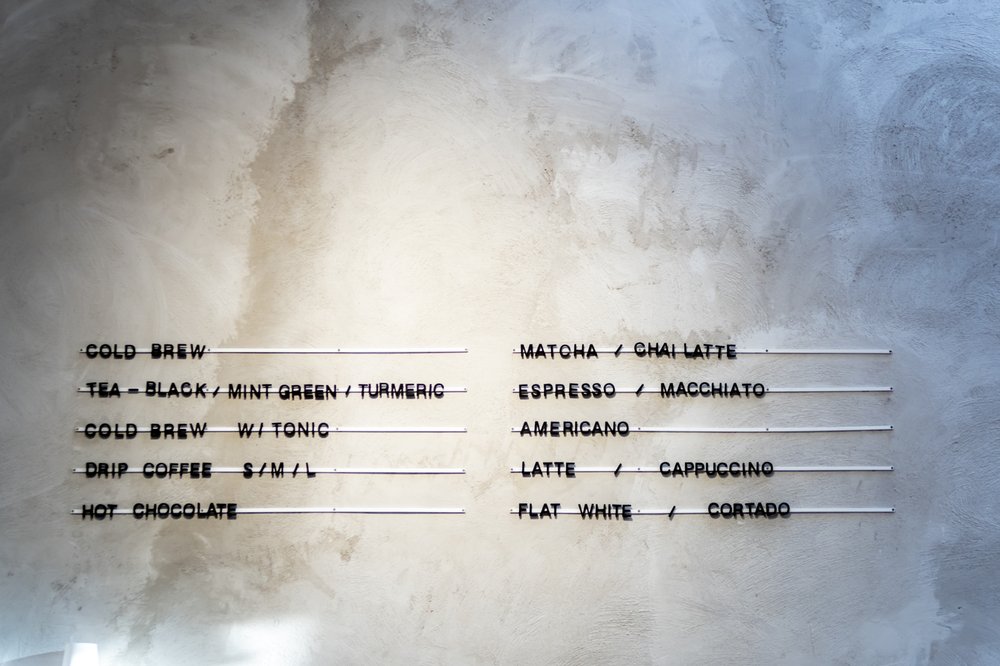 COLD BREW
TEA - BLACK / MINT GREEN / TURMERIC
COLD BREW W/ TONIC
DRIP COFFEE S/M/L
HOT CHOCOLATE
MATCHA / CHAI LATTE
ESPRESSO / MACCHIATO
AMERICANO
LATTE / CAPPUCCINO
FLAT WHITE / CORTADO